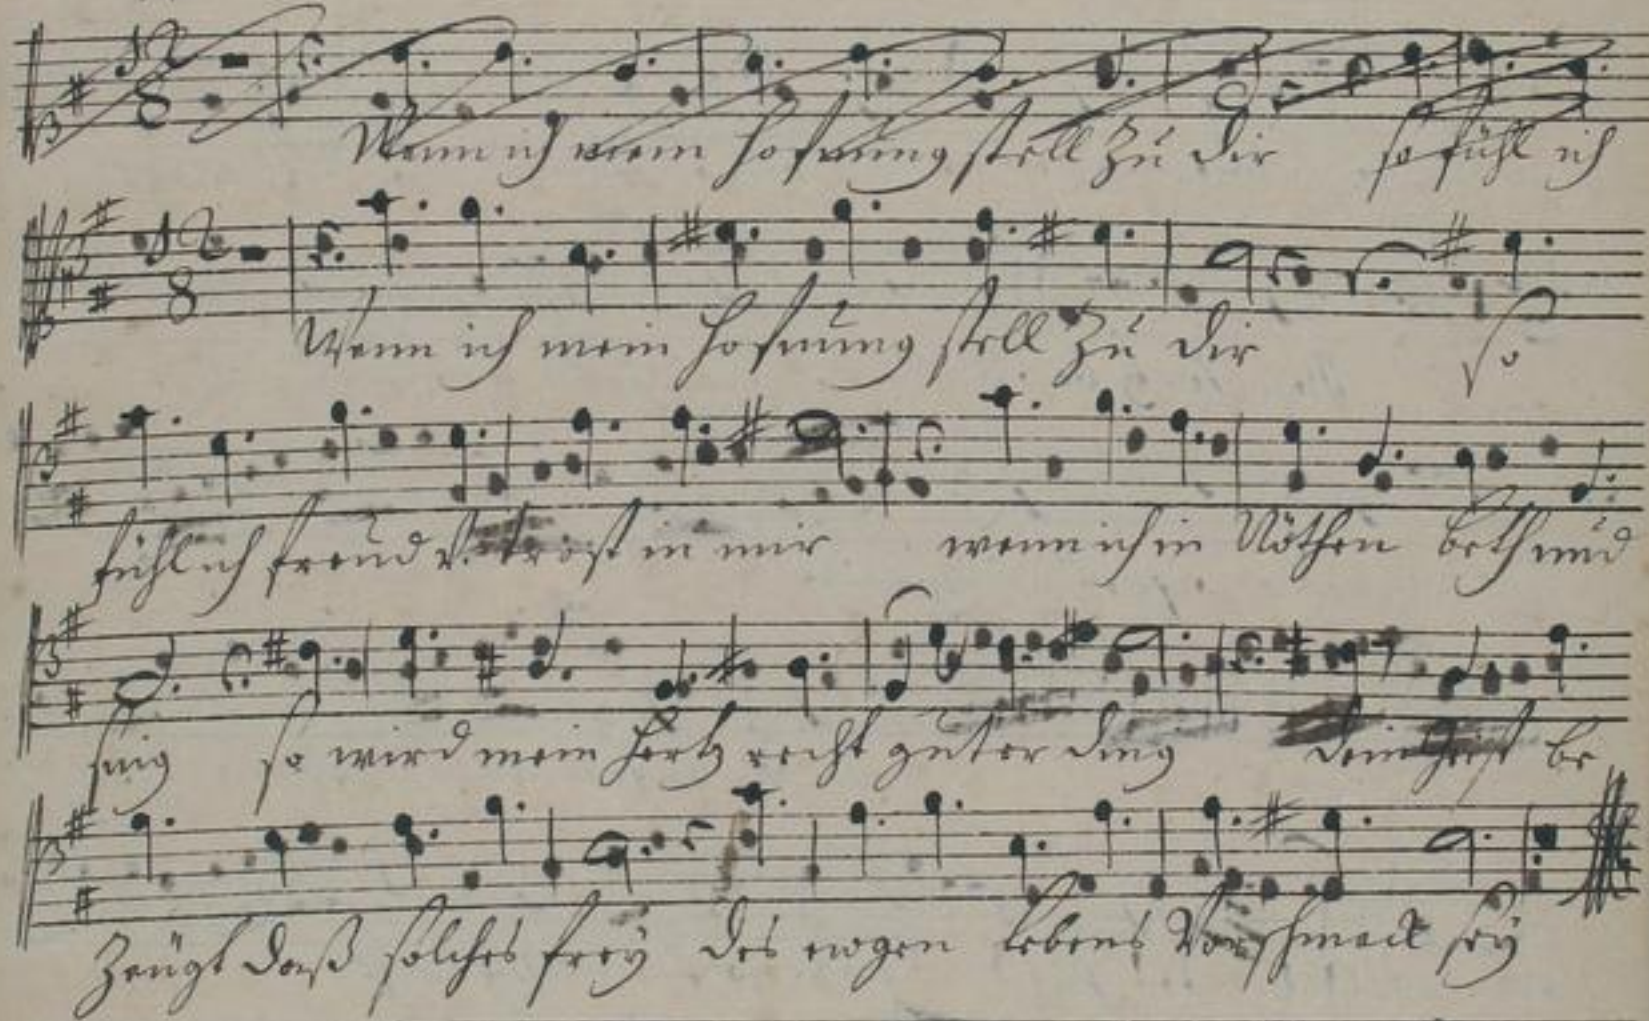 Wenn ich mein Hofnung stell zu dir so fühl ich
Wenn ich mein Hofnung stell zu dir so
fühl ich freud u. trost in mir wenn ich in Nöthen beth und
sing so wird mein Hertz recht guter ding dein Geist be
zeugt daß solches frey des ewgen Lebens Vorschmack sey